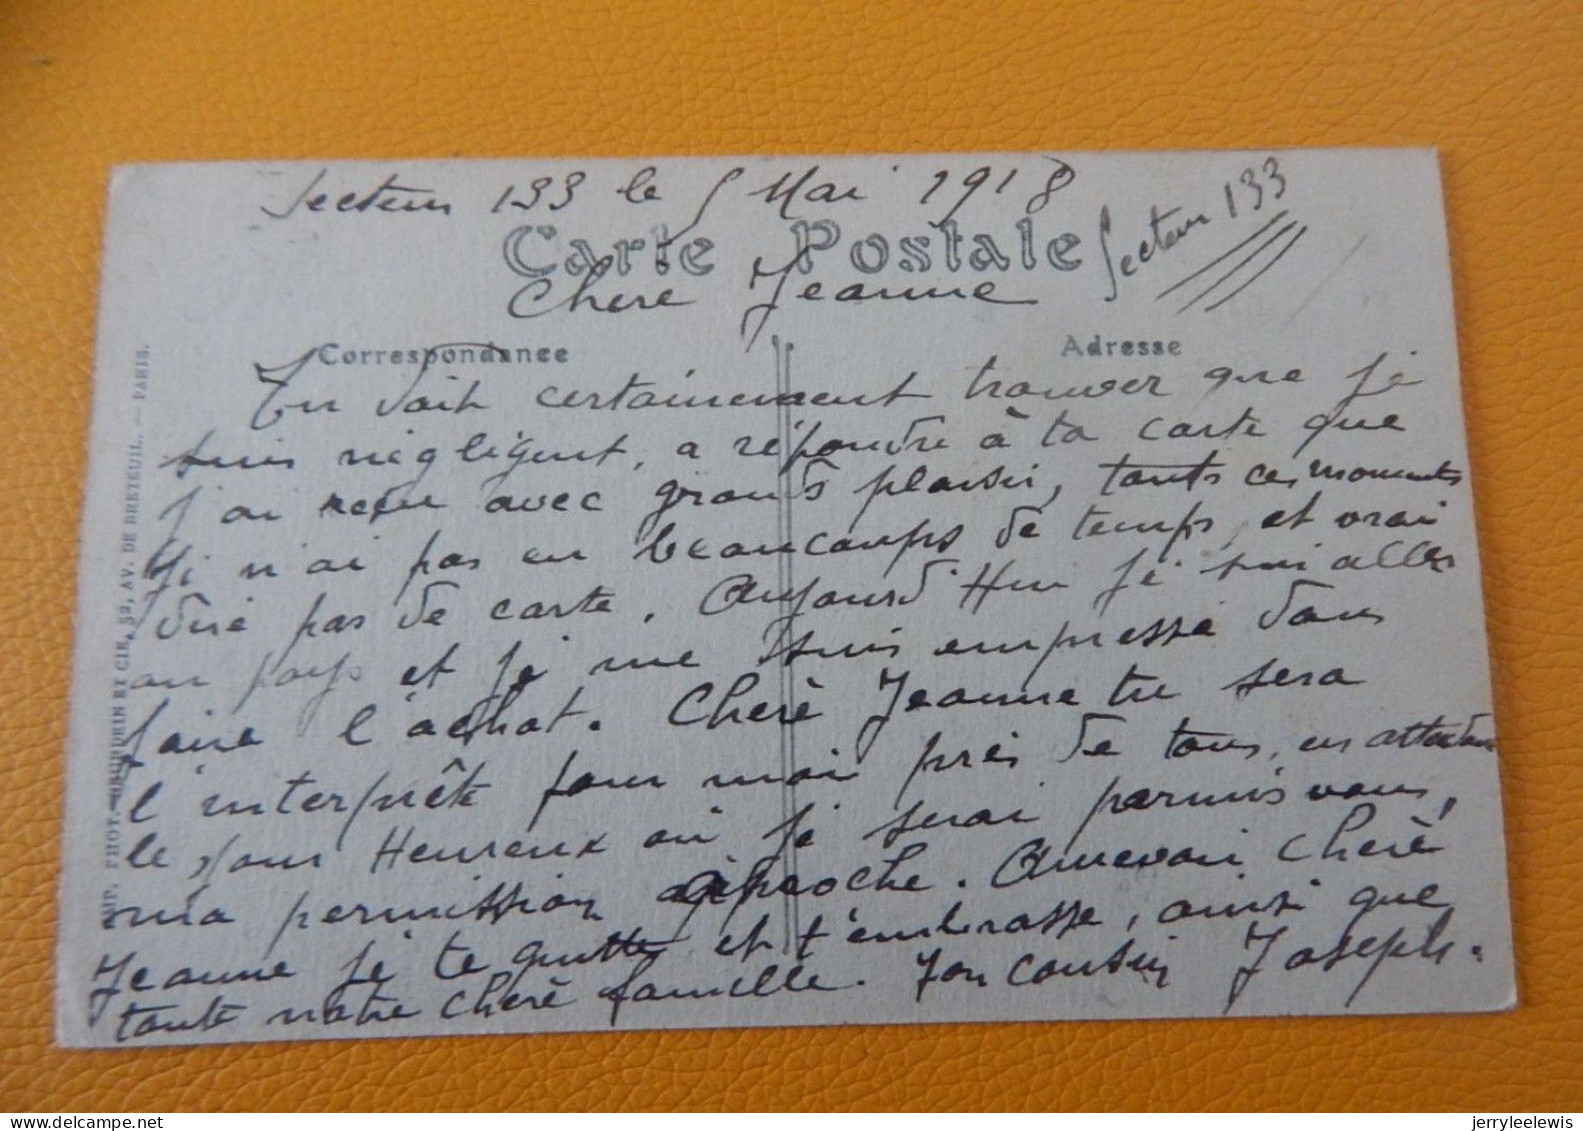 Secteur 133 le 5 Mai 1918
Secteur 133
Carte Postale
Cherè Jeanne
Correspondance
Adresse
Tu doit certainement trouver que je
suis négligent, a répondre à ta carte que
j'ai reçu avec grands plaisir, tants ces moments
Ji n'ai pas eu beaucoups de temps, et vrai
diré pas de carte. Aujourd'Hui je sui aller
au pays et je me suis empressé dans
faire l'achat. Cherè Jeanne tu sera
l'interprête pour moi près de tous, en attendan
le jour Heureux où je serai parmis vous,
ma permission approche. Aurevoir Cherè
Jeanne je te quitte et t'embrasse, ainsi que
toute notre cherè famille. Ton cousin Joseph.
IMP. PHOT. BAUDUIN ET CIE, 52, AV. DE BRETEUIL. — PARIS.
jerryleelewis
www.delcampe.net